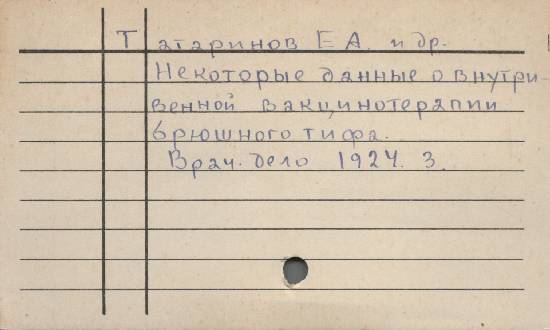 Татаринов Е А. и др.
Некоторые данные о внутри-
венной вакцинотерапии
брюшного тифа.
Врач. дело 1924. 3.